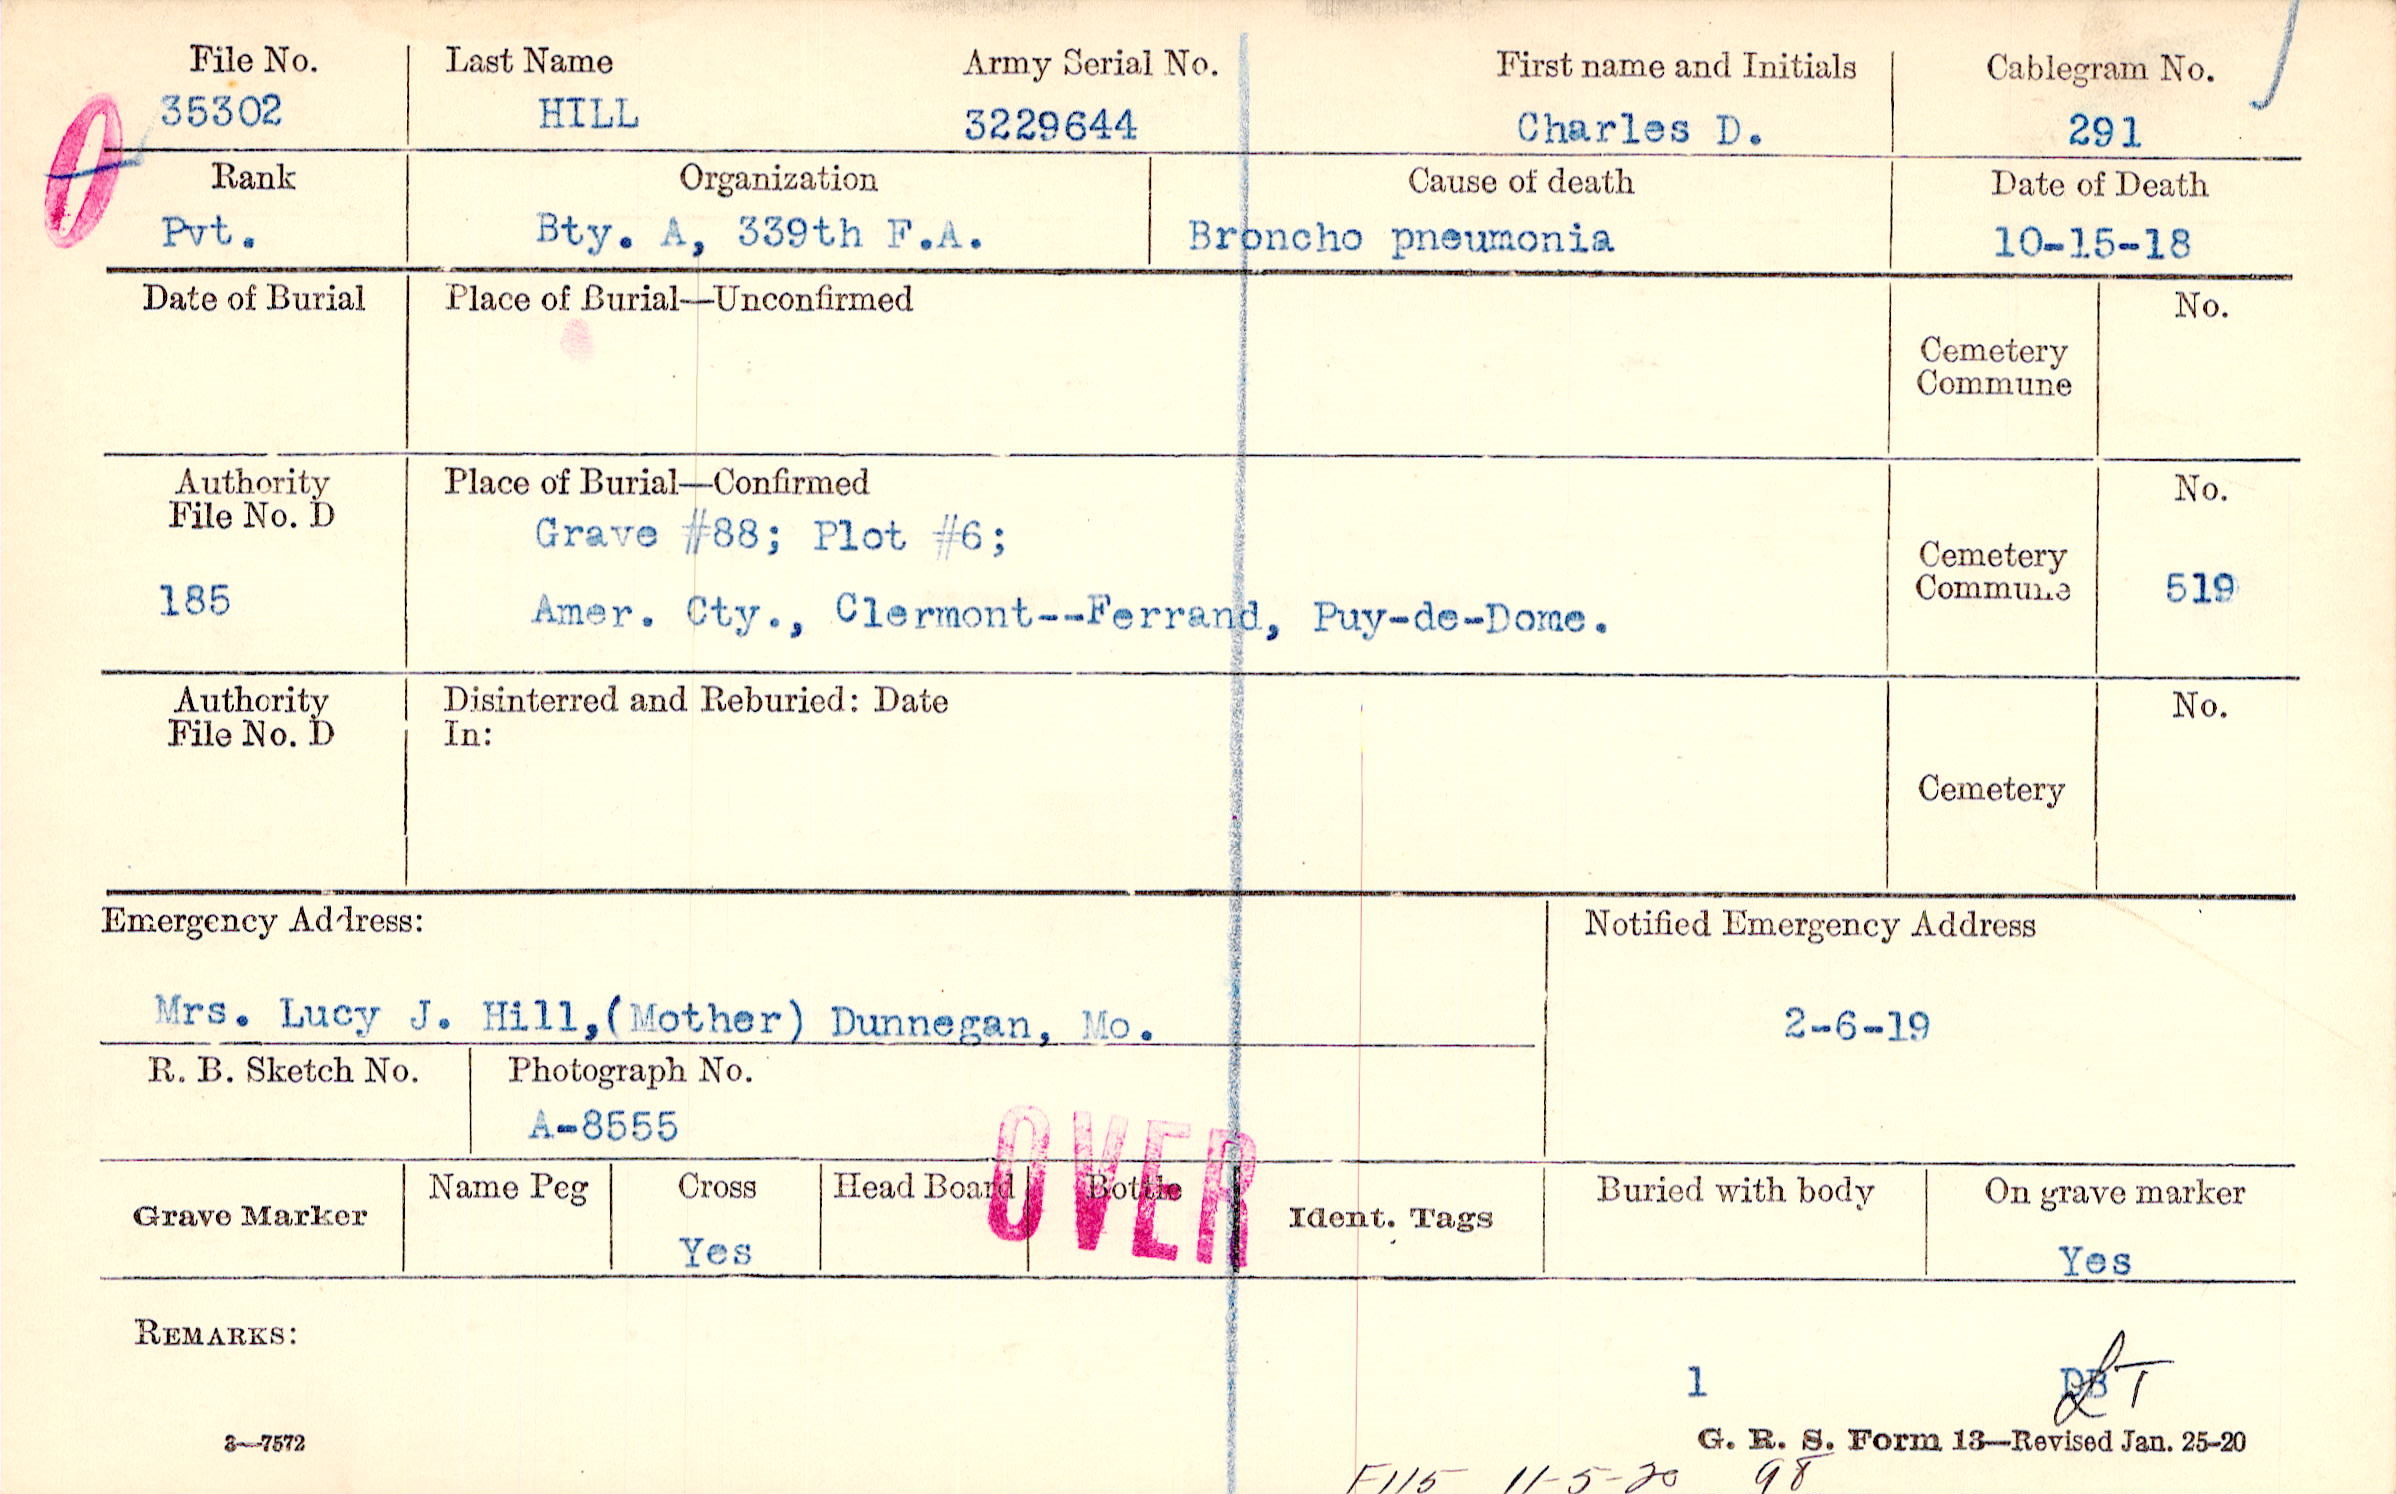 File No. Last Name Army Serial No. First name and Initials Cablegram No.
35302 HILL 3229644 Charles D. 291
Rank Organization Cause of death Date of Death
Pvt. Bty. A, 339th F.A. Broncho pneumonia 10-15-18
Date of Burial Place of Burial—Unconfirmed No.
Cemetery
Commune
Authority Place of Burial—Confirmed No.
File No. D
Grave #88; Plot #6;
Cemetery
Commune
185 Amer. Cty., Clermont--Ferrand, Puy-de-Dome. 519
Authority Disinterred and Reburied: Date No.
File No. D In:
Cemetery
Emergency Address: Notified Emergency Address
Mrs. Lucy J. Hill,(Mother) Dunnegan, Mo. 2-6-19
R. B. Sketch No. Photograph No.
A-8555
OVER
Grave Marker Name Peg Cross Head Board Bottle Ident. Tags Buried with body On grave marker
Yes Yes
REMARKS:
1 DB
3—7572 G. R. S. Form 13—Revised Jan. 25-20
F115 11-5-20 98